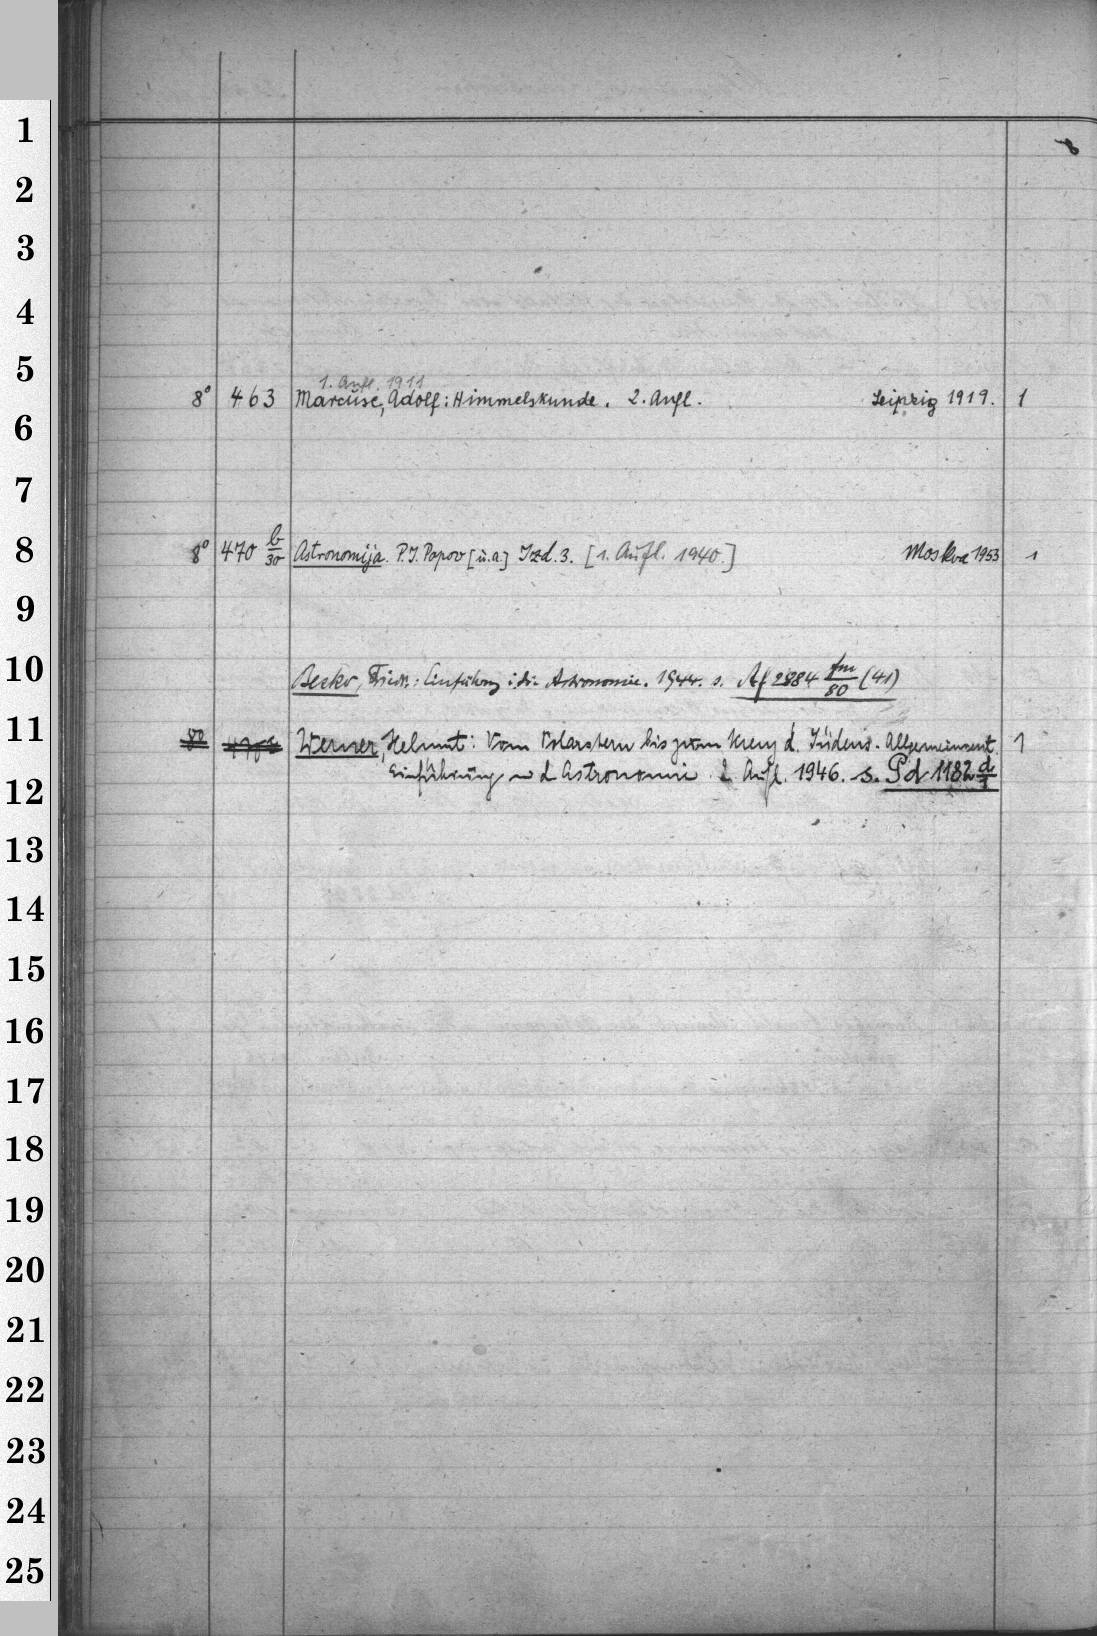 1
2
3
4
5
6
7
8
9
10
11
12
13
14
15
16
17
18
19
20
21
22
23
24
25
8
1. Aufl. 1911
8° 463 Marcuse, Adolf: Himmelskunde. 2. Aufl. Leipzig 1919. 1
8° 470 b/30 Astronomija. P.I. Popov [u.a.] Izd. 3. [1. Aufl. 1940.] Moskva 1953 1
Becker, Friedr.: Einführung i. die Astronomie. 1944. s. Af 2884 fm/80 (41)
8° Werner, Helmut: Vom Polarstern bis zum Kreuz d. Südens. Allgemeinverst. 1
Einführung in d Astronomie. 2. Aufl. 1946. s. Pd 1182 d/1